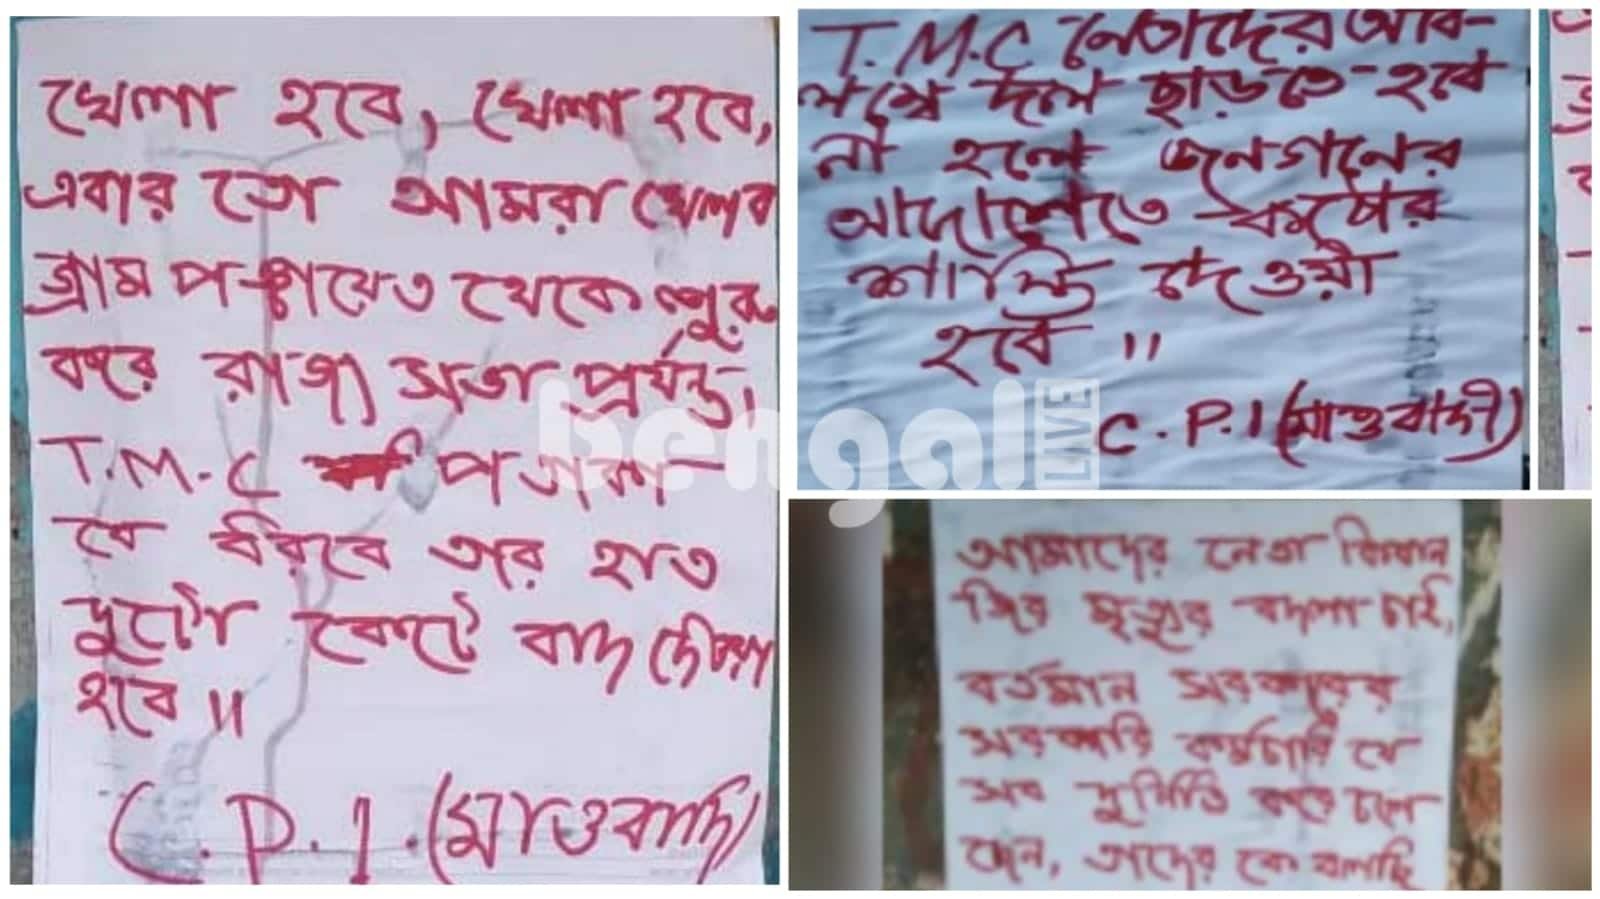 খেলা হবে, খেলা হবে,
এবার তো আমরা খেলব
গ্রাম পঞ্চায়েত থেকে শুরু
করে রাজ্য সভা প্রর্যন্ত।
T.M.C পতাকা
যে ধরবে তার হাত
দুটো কেটে বাদ দেওয়া
হবে ॥
C.P.I.(মাওবাদি)
T.M.C নেতাদের অবি-
লম্বে দল ছাড়তে হবে
না হলে জনগনের
আদালতে কঠোর
শাস্তি দেওয়া
হবে ॥
C.P.I (মাওবাদী)
আমাদের নেতা কিষান
জির মৃত্যুর বদলা চাই,
বর্তমান সরকারের
সরকারি কর্মচারি যে
সব দুর্নিতি করে চলে
ছেন, তাদের কে বলছি
bengal LIVE